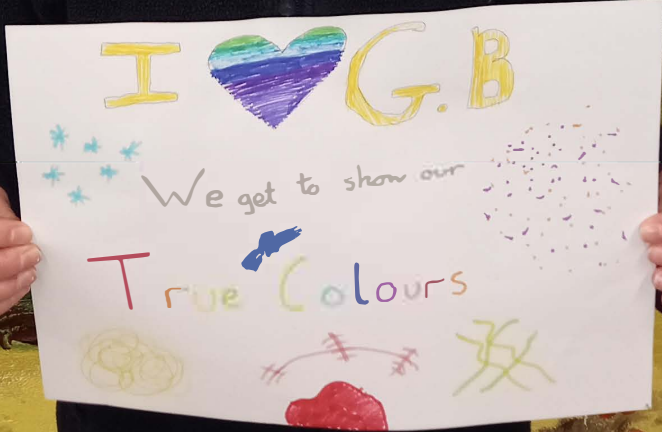 I ♥ G.B
We get to show our
True Colours